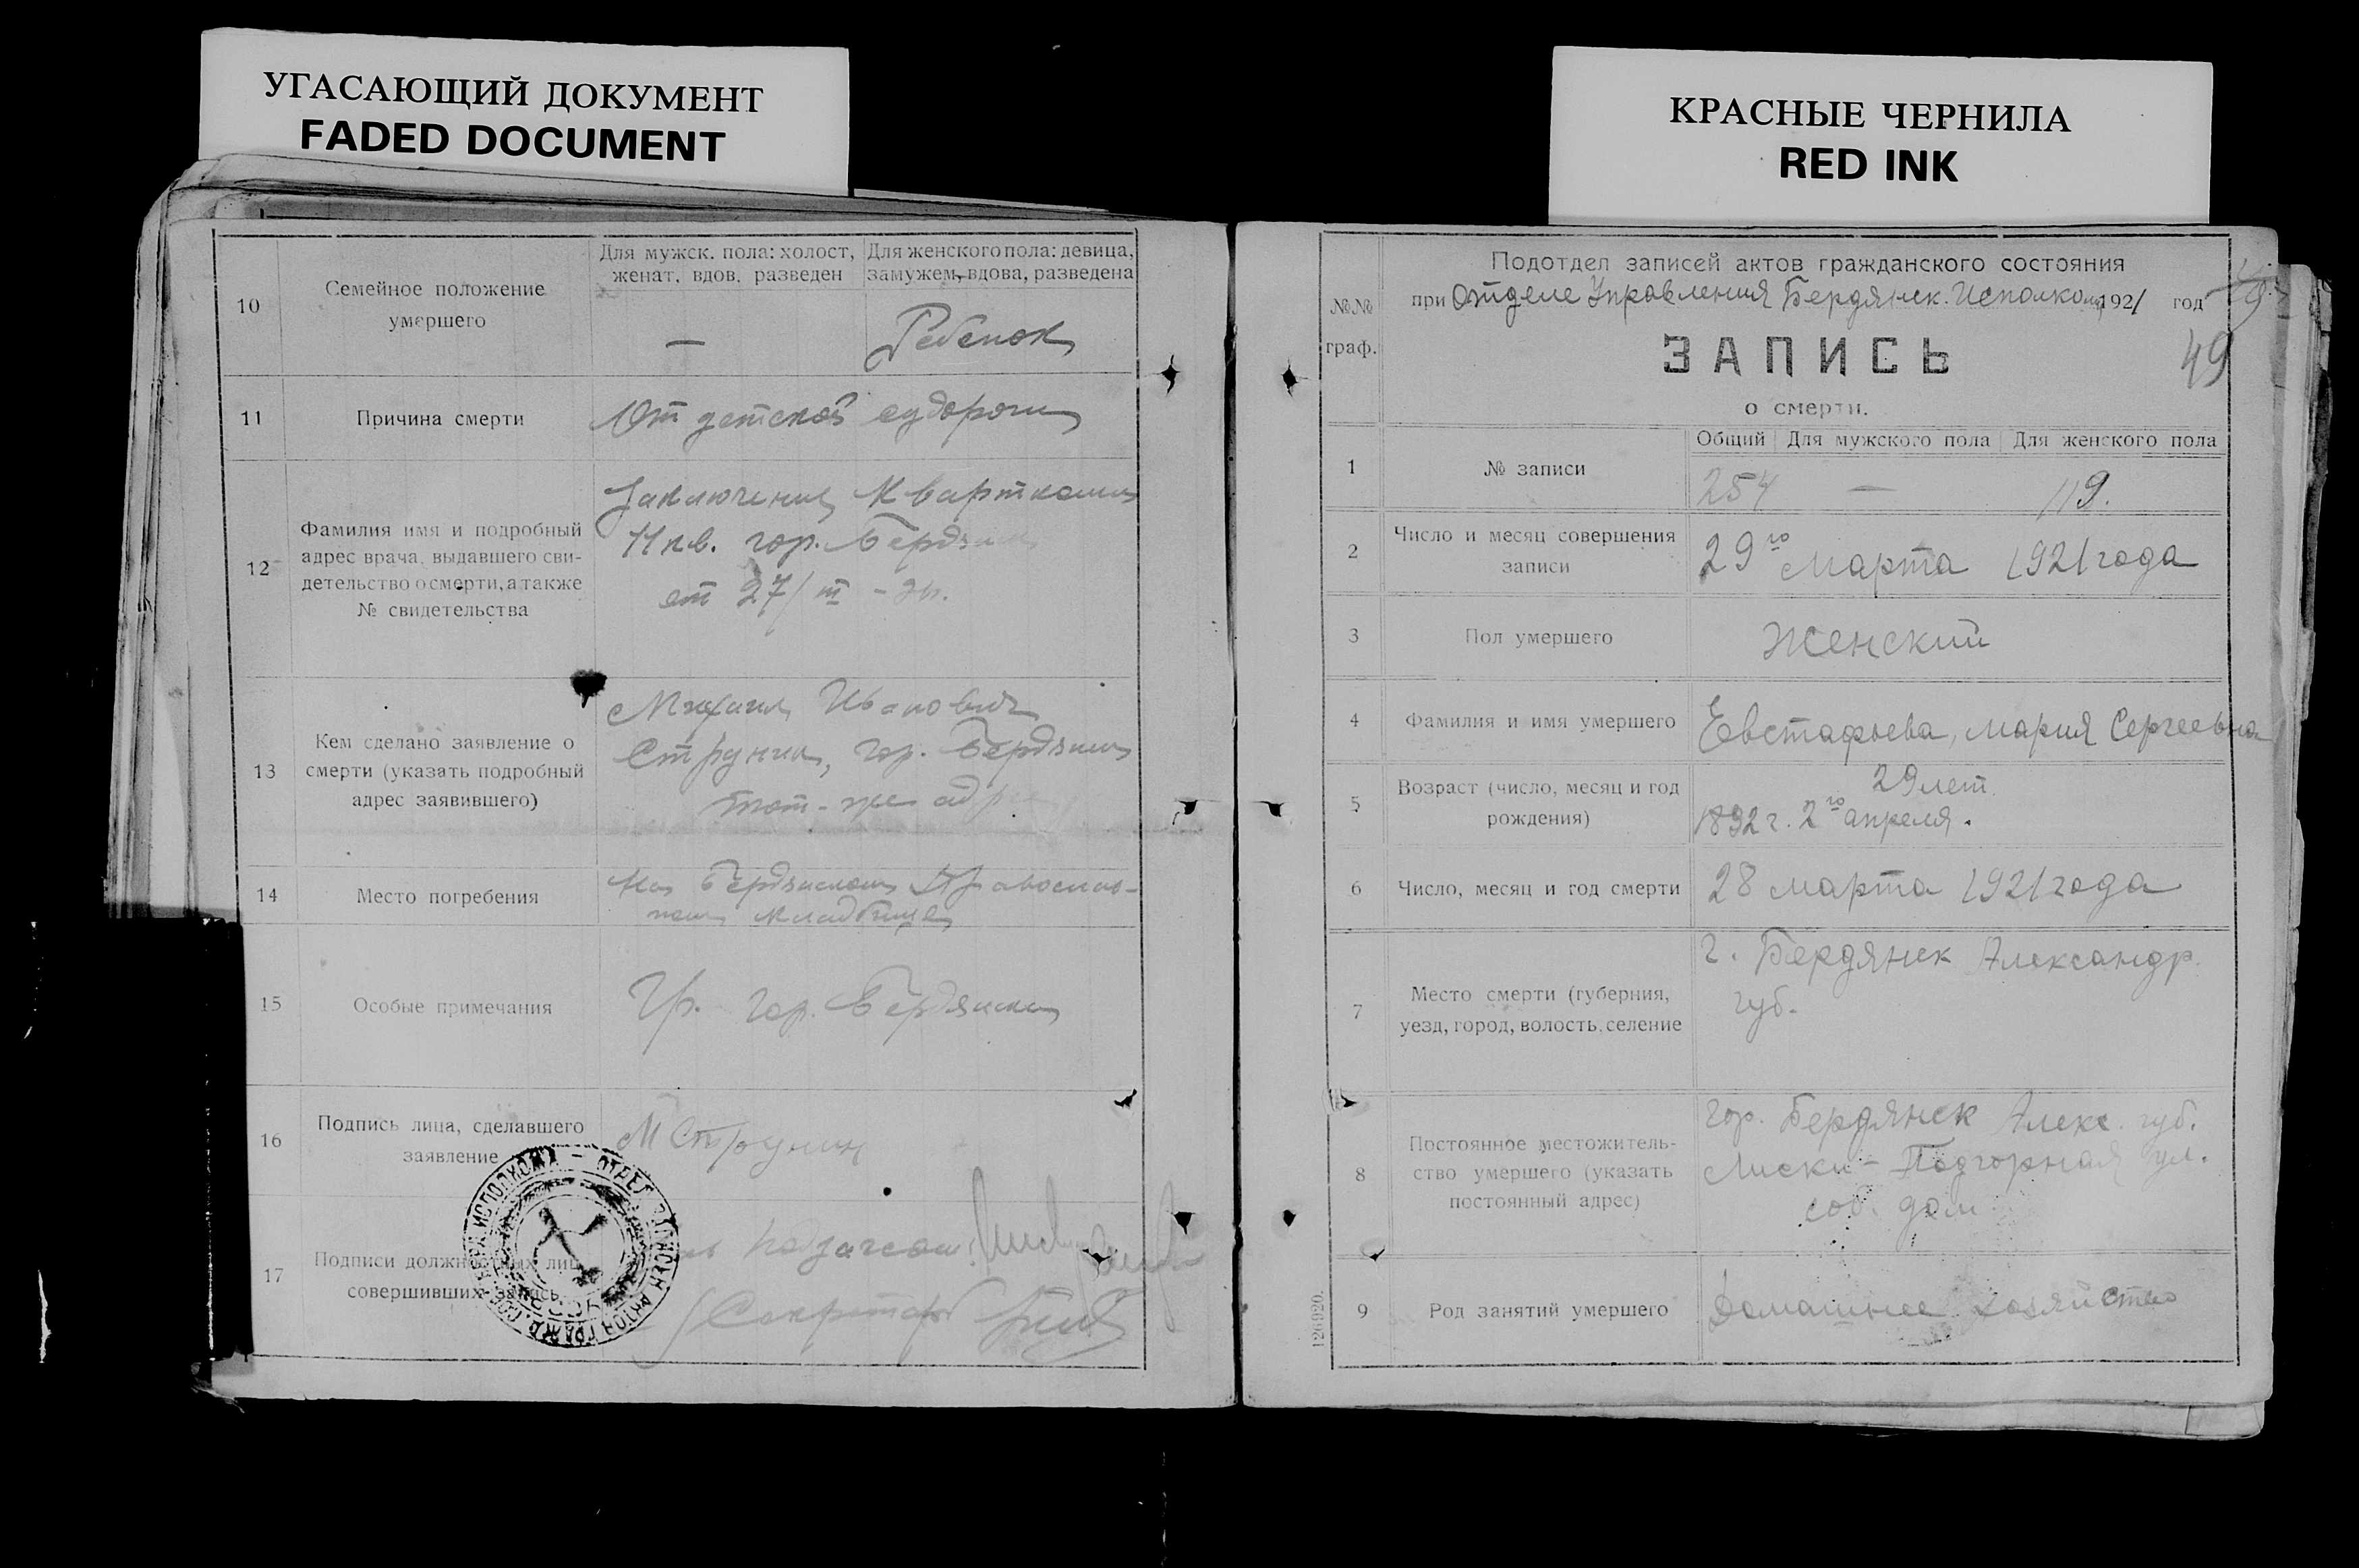 УГАСАЮЩИЙ ДОКУМЕНТ
FADED DOCUMENT
10
Семейное положение
умершего
Для мужск. пола: холост,
женат, вдов, разведен
Для женского пола: девица,
замужем, вдова, разведена
—
Ребенок
11
Причина смерти
От детской судороги
12
Фамилия имя и подробный
адрес врача, выдавшего сви-
детельство о смерти, а также
№ свидетельства
Заключение Кварткома
11 кв. гор. Бердянска
от 27/III - 21г.
13
Кем сделано заявление о
смерти (указать подробный
адрес заявившего)
Михаил Иванович
Струнин, гор. Бердянск
тот-же адрес
14
Место погребения
На Бердянском Православ-
ном кладбище
15
Особые примечания
Гр. гор. Бердянска
16
Подпись лица, сделавшего
заявление
М Струнин
17
Подписи должностных лиц
совершивших запись
Секретарь
КРАСНЫЕ ЧЕРНИЛА
RED INK
№№
граф.
Подотдел записей актов гражданского состояния
при Отделе Управления Бердянск. Исполкома 1921 год
49
ЗАПИСЬ
о смерти.
1
№ записи
Общий Для мужского пола Для женского пола
254 — 119.
2
Число и месяц совершения
записи
29го Марта 1921 года
3
Пол умершего
Женский
4
Фамилия и имя умершего
Евстафьева, Мария Сергеевна
5
Возраст (число, месяц и год
рождения)
29 лет.
1892 г. 2го апреля.
6
Число, месяц и год смерти
28 марта 1921 года
7
Место смерти (губерния,
уезд, город, волость, селение
г. Бердянск Александр.
губ.
8
Постоянное местожитель-
ство умершего (указать
постоянный адрес)
гор. Бердянск Алекс. губ.
Лиски - Подгорная ул.
соб. дом
9
Род занятий умершего
Домашнее хозяйство
126920.